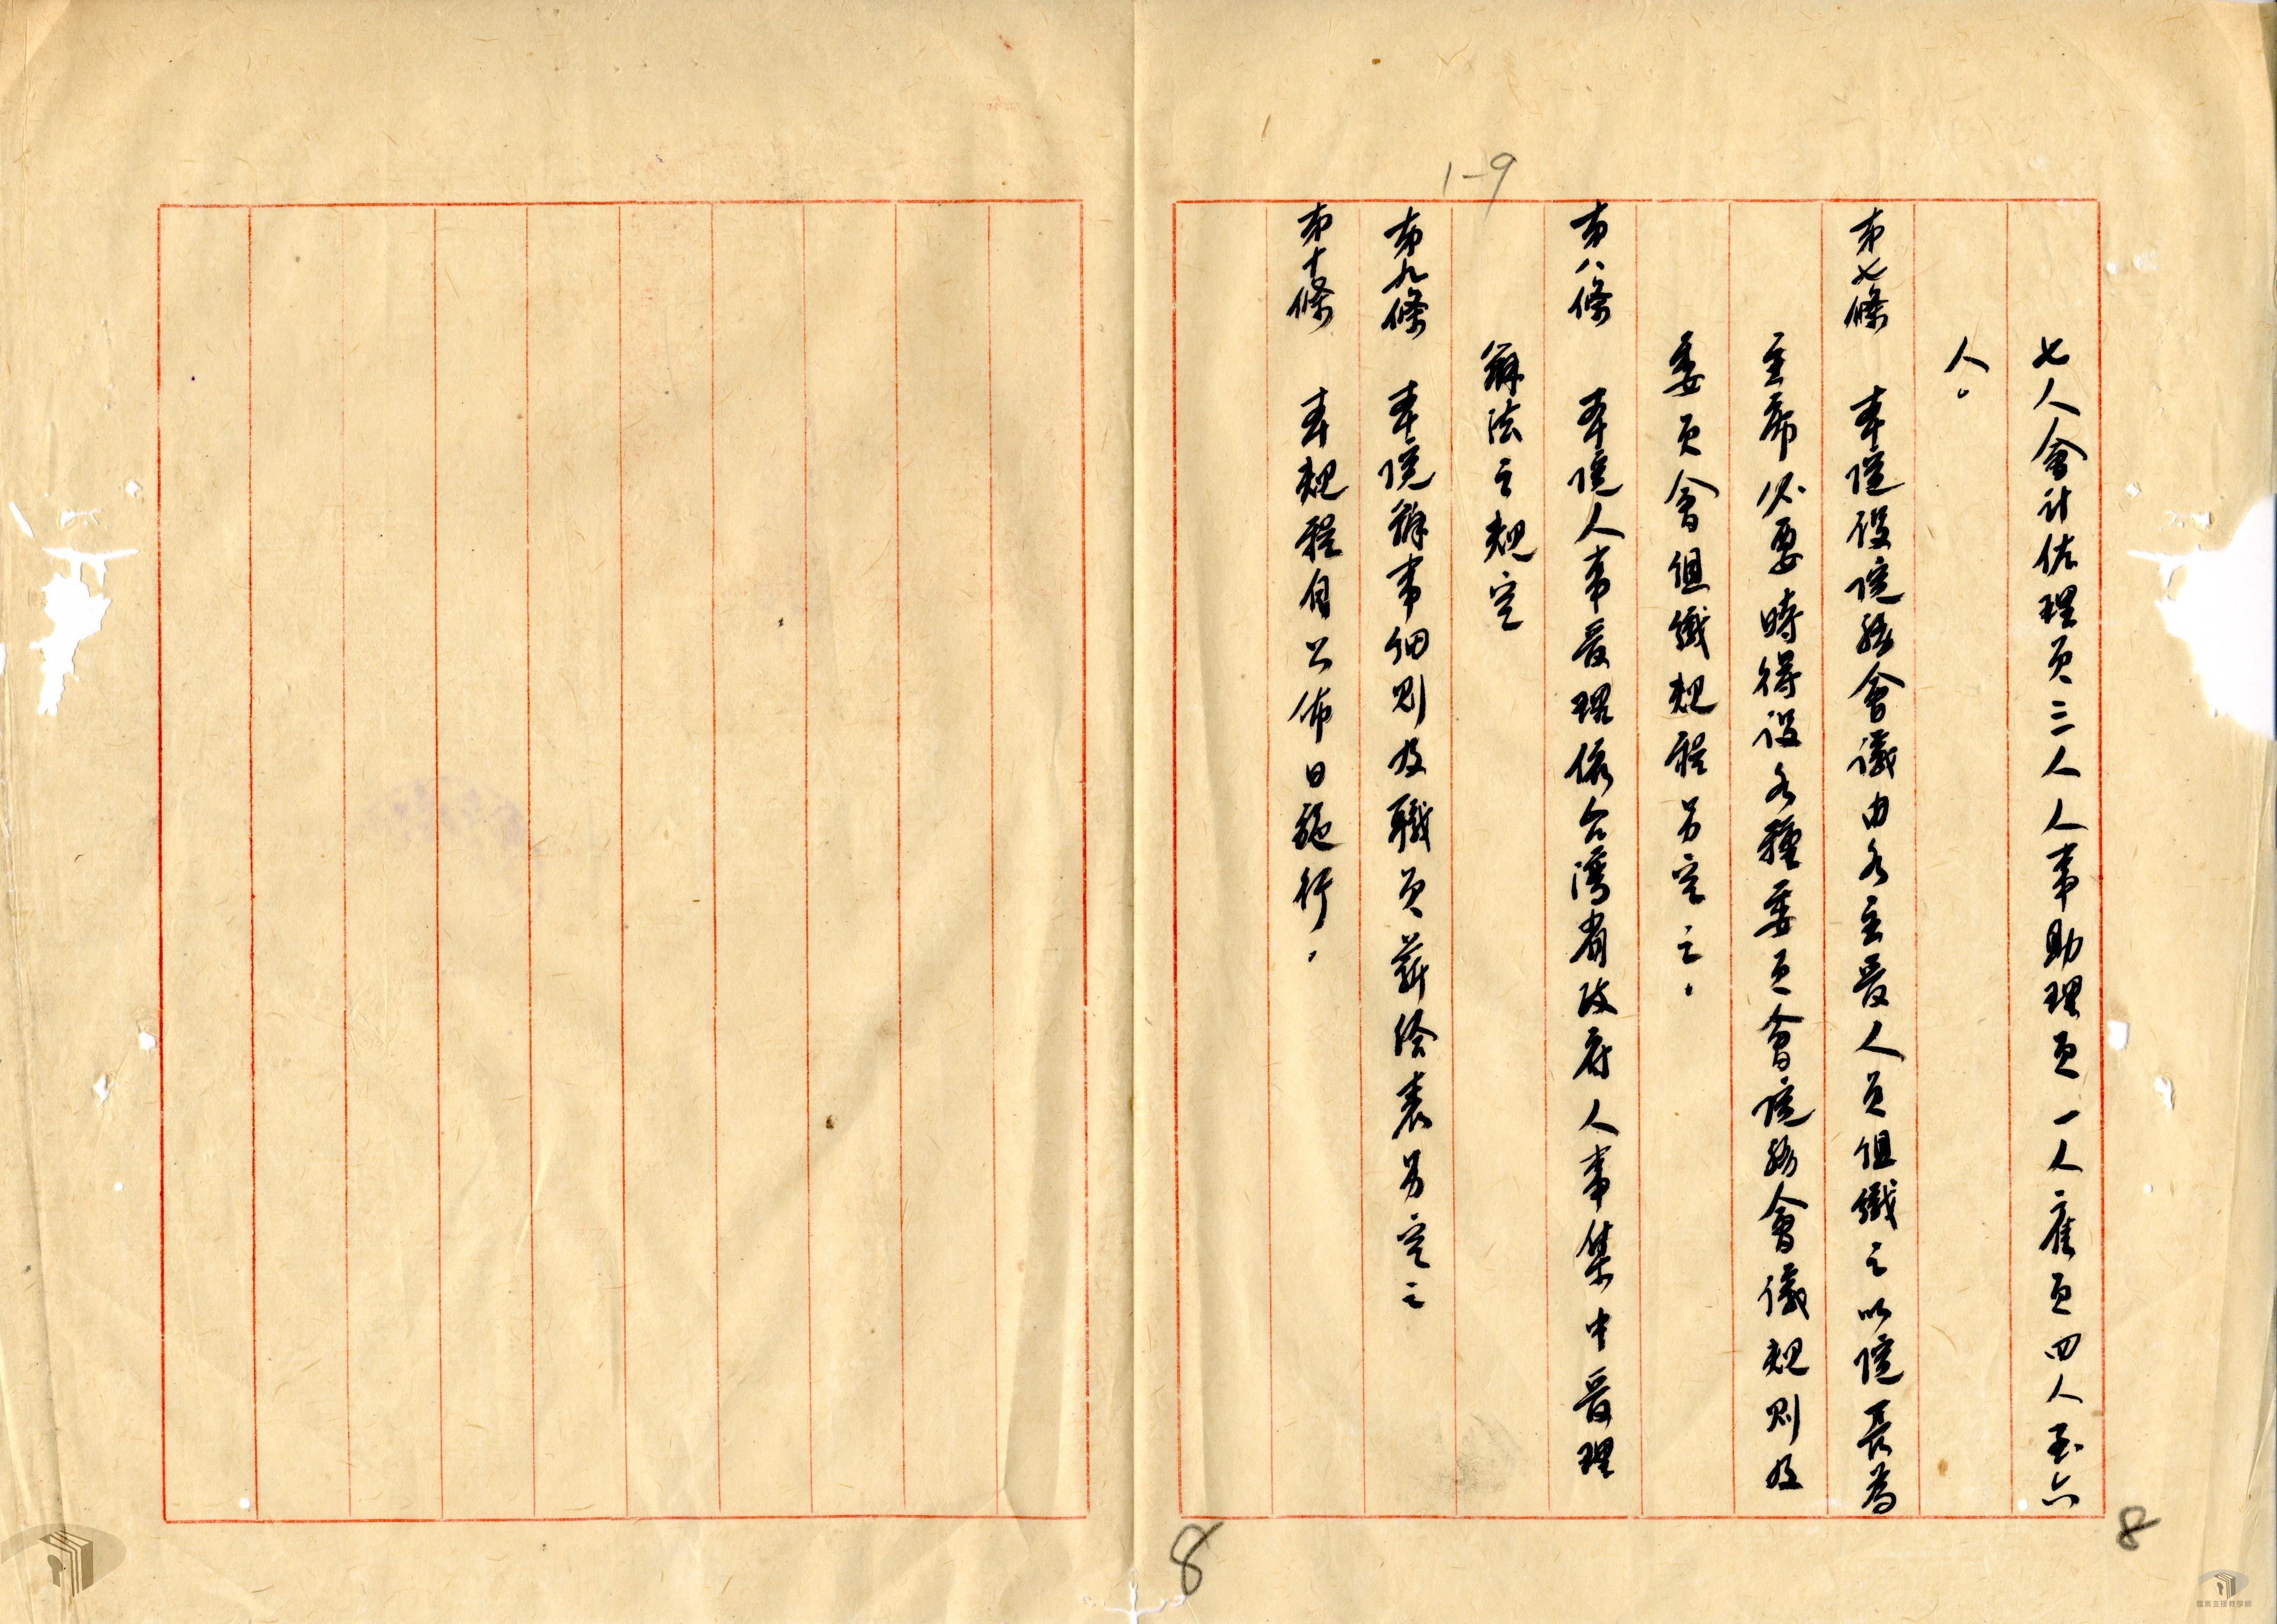 1-9
七人會計佐理員三人人事助理員一人雇員四人至六
人。
第七條 本院設院務會議由各主管人員組織之以院長為
主席必要時得設各種委員會院務會儀規則及
委員會組織規程另定之。
第八條 本院人事管理依台灣省政府人事集中管理
辦法之規定
第九條 本院辦事細則及職員薪給表另定之
第十條 本規程自公佈日施行。
8
8
國家玄撢教學館